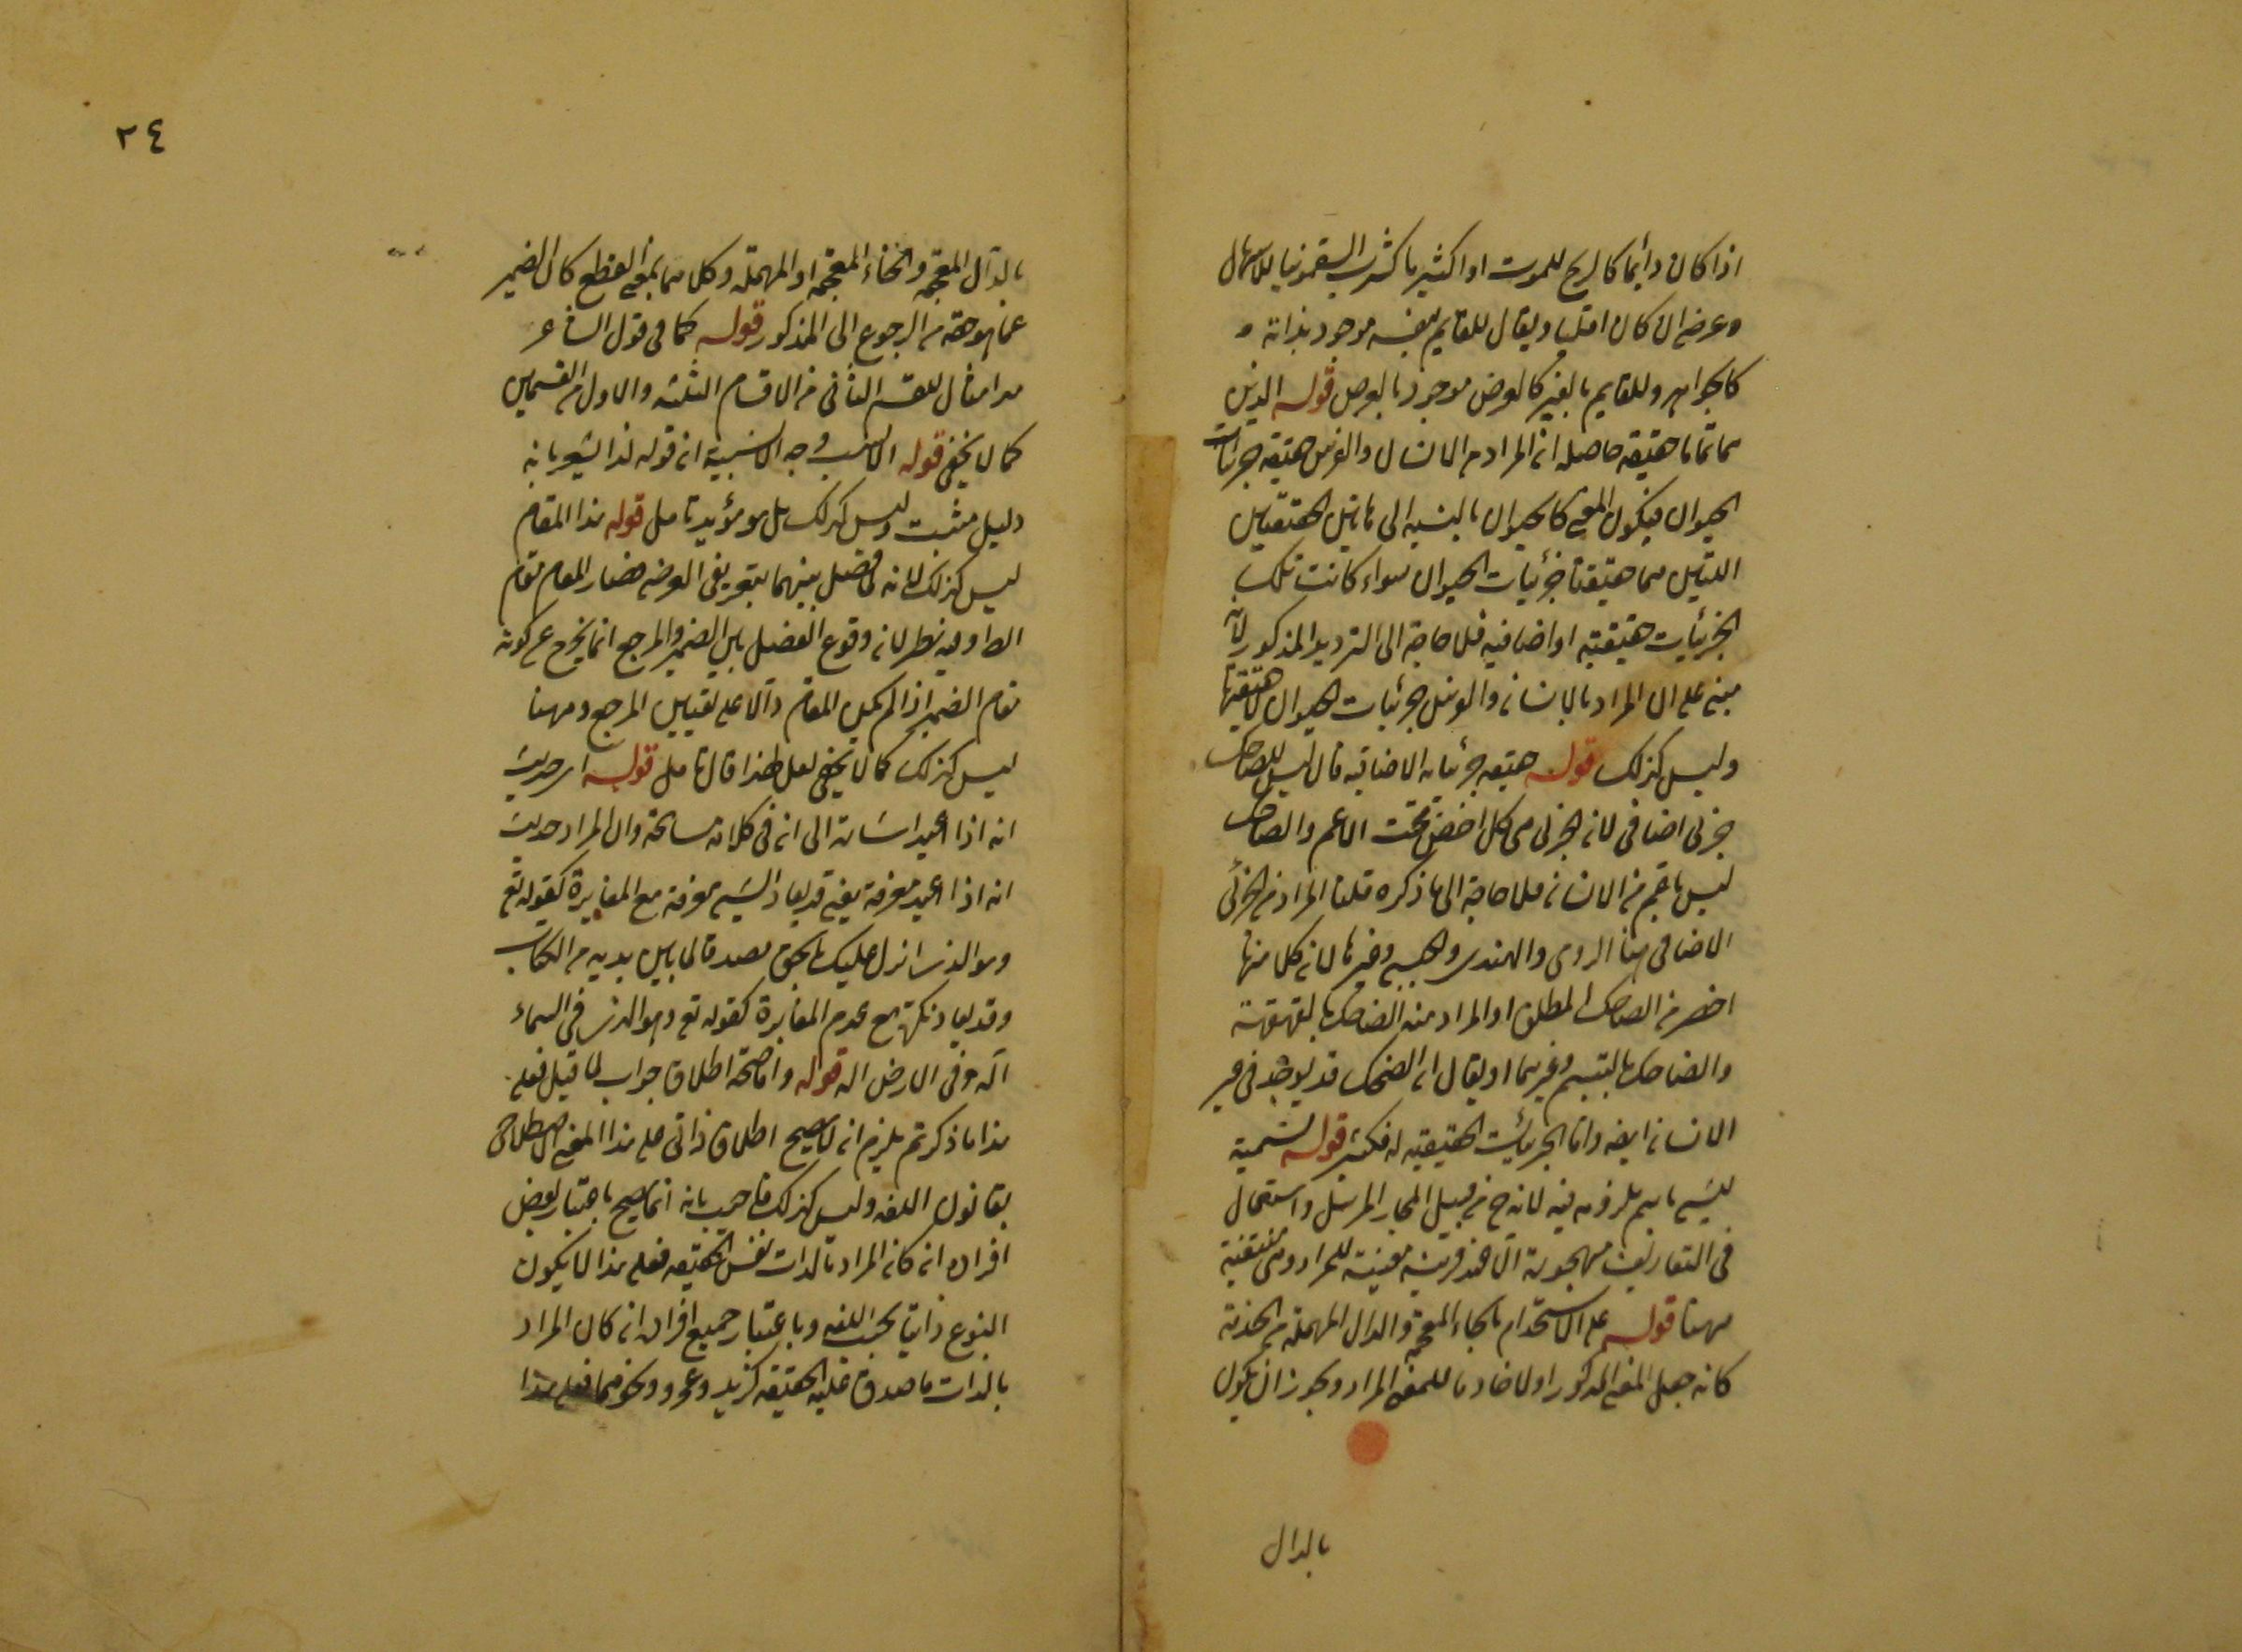 اذا كان دائما كالريح للموت او اكثير يا كشرب السقمونيا للاسهال
وعرضي ان كان اقليا ويقال للقايم بنفسه موجود بذاته
كالجواهر وللقايم بالغير كالعرض موجود بالعرض قوله الذين
هما تمام حقيقة حاصله ان المراد من الانسان والفرس حقيقة جزئيات
الحيوان فيكون المعنى كالحيوان بالنسبة الى هاتين الحقيقتين
اللتين هما حقيقتا جزئيات الحيوان سواء كانت تلك
الجزئيات حقيقية او اضافية فلا حاجة الى الترديد المذكور لانه
مبني على ان المراد بالانسان والفرس جزئيات الحيوان لا حقيقتها
وليس كذلك قوله حقيقة جزئياته الاضافية قال ليس للضاحك
جزئي اضافي لان الجزئي هي كل اخص تحت الاعم والضاحك
ليس باعم من الانسان فلا حاجة الى ما ذكره قلنا المراد من الجزئي
الاضافي هنا الرومي والهندي والحبشي وغيرها لان كلا منها
اخص من الضاحك المطلق او المراد منه الضاحك بالقهقهة
والضاحك بالتبسم وغيرهما او يقال ان الضحك قد يوجد في غير
الانسان ايضه واما الجزئيات الحقيقية له فكثير قوله تسمية
للشيء باسم ملزومه فيه لانه ح من قبيل المجاز المرسل واستعمال
في التعاريف مهجورة الا عند قرينة معينة للمراد وهي منتفية
ههنا قوله على الاستخدام بالخاء المعجمة والدال المهملة من الخدمة
كانه جعل المعنى المذكور اولا خادما للمعنى المراد ويجوز ان يكون
بالدال
٢٤
بالذال المعجمة والخاء المعجمة او المهملة وكلاهما بمعنى القطع كان الضمير
عما هو حقه من الرجوع الى المذكور قوله كما في قول الشاعر
هذا مثال للقسم الثاني من الاقسام الثلثة والاول من القسمين
كما لا يخفى قوله الانسب وجه الانسبية ان قوله لذا يشعر بانه
دليل مثبت وليس كذلك بل هو مؤيد تامل قوله هذا المقام
ليس كذلك لانه فصل بينهما بتعريف العرضي فصار المقام مقام
الظ وفيه نظر لان وقوع الفصل بين الضمير والمرجع انما يخرج عن كونه
مقام الضمير اذا لم يكن المقام دالا على تعيين المرجع وههنا
ليس كذلك كما لا يخفى لعل لهذا قال تامل قوله اى حديث
انه اذا اعيد اشارة الى ان في كلامه مسامحة وان المراد حديث
انه اذا اعيد معرفة يعني قد يعاد الشيء معرفة مع المغايرة كقوله تع
وهو الذى انزل عليك بالحق مصدقا لما بين يديه من الكتاب
وقد يعاد نكرة مع عدم المغايرة كقوله تع وهو الذى في السماء
اله وفي الارض اله قوله واما صحة اطلاق جواب لما قيل فعلى
هذا ما ذكرتم يلزم ان لا يصح اطلاق ذاتي على هذا المعنى الاصطلاحى
بقانون اللغة وليس كذلك فاجيب بانه انما يصح باعتبار بعض
افراده ان كان المراد بالذات نفس الحقيقة فعلى هذا لا يكون
النوع ذاتيا بحسب اللغة وباعتبار جميع افراده ان كان المراد
بالذات ما صدق عليه الحقيقة كزيد وعمرو ونحوهما فعلى هذا